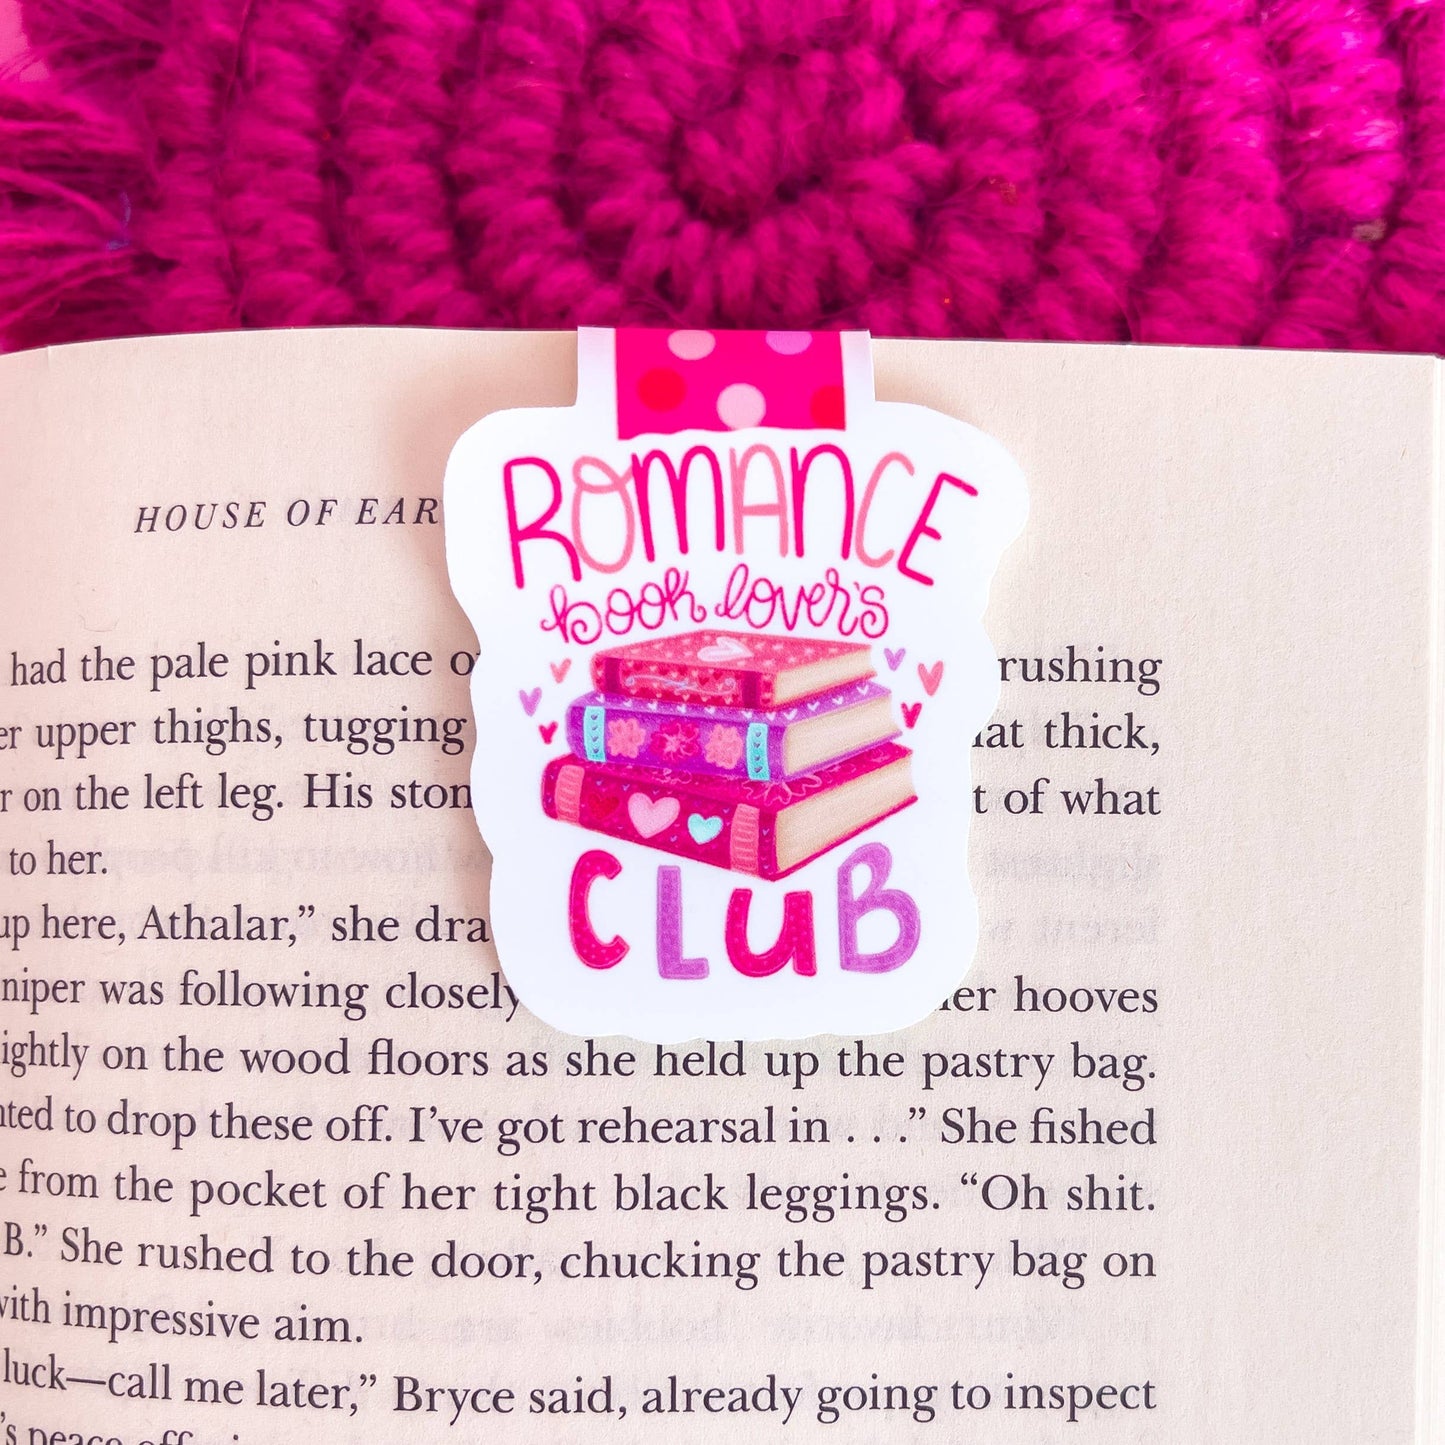 HOUSE OF EAR
ROMANCE
book lover's
CLUB
had the pale pink lace
rushing
upper thighs, tugging
thick,
on the left leg. His
of what
to her.
up here, Athalar,” she
was following closely
hooves
on the wood floors as she held up the pastry bag.
to drop these off. I’ve got rehearsal in . . .” She fished
from the pocket of her tight black leggings. “Oh shit.
B.” She rushed to the door, chucking the pastry bag on
with impressive aim.
luck—call me later,” Bryce said, already going to inspect